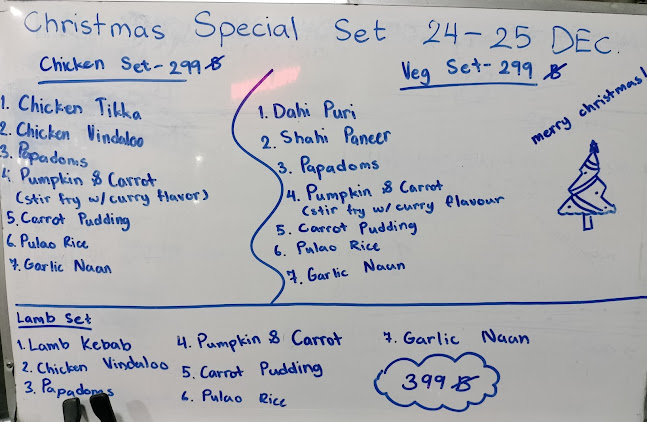 Christmas Special Set 24-25 DEC.
Chicken Set - 299 ฿
1. Chicken Tikka
2. Chicken Vindaloo
3. Papadoms
4. Pumpkin & Carrot
(stir fry w/ curry flavor)
5. Carrot Pudding
6. Pulao Rice
7. Garlic Naan
Veg Set - 299 ฿
1. Dahi Puri
2. Shahi Paneer
3. Papadoms
4. Pumpkin & Carrot
(stir fry w/ curry flavour
5. Carrot Pudding
6. Pulao Rice
7. Garlic Naan
merry christmas!
Lamb Set
1. Lamb Kebab
2. Chicken Vindaloo
3. Papadoms
4. Pumpkin & Carrot
5. Carrot Pudding
6. Pulao Rice
7. Garlic Naan
399 ฿